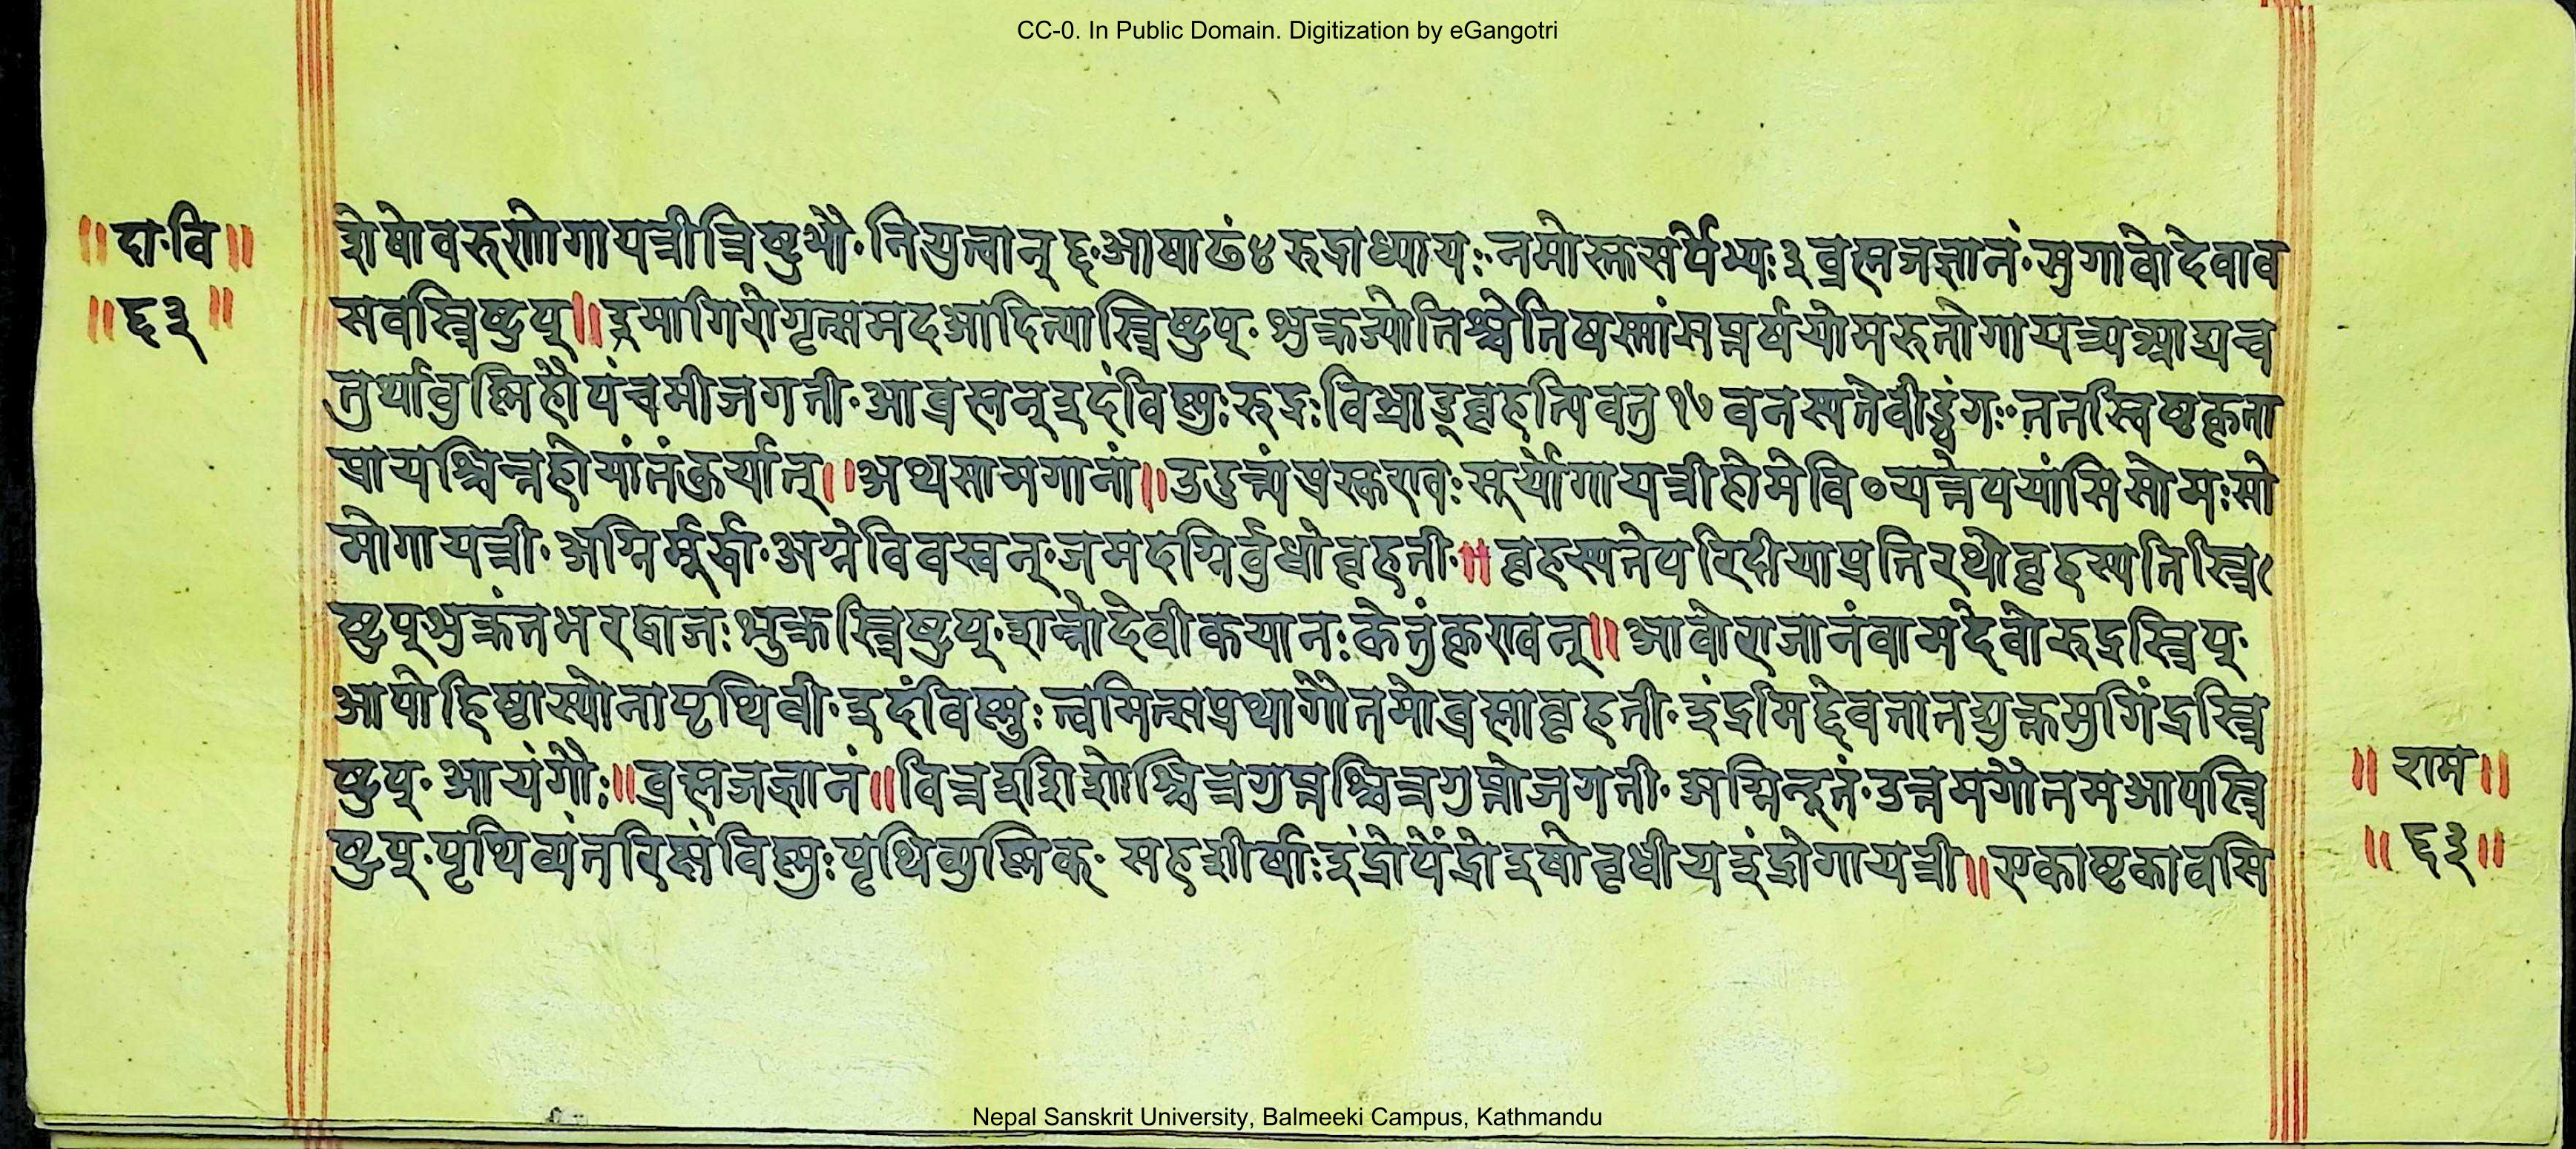 CC-0. In Public Domain. Digitization by eGangotri
॥दा·वि॥
॥६३॥
शेषोवरुणोगायत्रीत्रिष्टुभौ·नियुत्वान् ६·आषाढं४ रुद्राध्यायः·नमोस्तुसर्पेभ्यः३ब्रह्मजज्ञानं·सुगावोदेवाव
सवस्त्रिष्टुप्॥इमागिरोगृत्समदआदित्यास्त्रिष्टुप्·शुक्रज्योतिश्चेतिषस्मांसप्तर्षयोमरुतोगायत्र्य
तुर्थावुष्णिहौपंचमीजगती·आब्रह्मन्इदंविष्णुःरुद्रःविभ्राड्बृहत्पिवतु१७वनस्पतेवीड्वंगः·ततस्विष्टकृता
प्रायश्चित्तहोमांतंकुर्यात्॥अथसामगानां॥उदुत्यंप्रस्कण्वःसूर्योगायत्रीहोमेवि०यत्तेपयांसिसोमःसो
मोगायत्री·अग्निर्मूर्द्धा·अग्नेविवस्वत्·जमदग्निर्वुधोबृहती·॥बृहस्पतेपरिदीयाप्रतिरथोबृहस्पतिस्त्रि
ष्टुप्शुक्रंतभरद्वाजःशुक्रस्त्रिष्टुप्·शन्नोदेवीकयानःकेतुंकृण्वन्॥आवोराजानंवामदेवोरुद्रस्त्रिप्·
आपोहिष्ठास्योनापृथिवी·इदंविष्णुःत्वमित्सप्रथागौतमोब्रह्माबृहती·इंद्रमिद्देवतातय
ष्टुप्·आयंगौः॥ब्रह्मजज्ञानं॥चित्रइशिशोश्चित्रगुप्तश्चित्रगुप्तोजगती·अग्निन्दूतं·उत्तमगौतमआपस्त्रि
ष्टुप्·पृथिव्यंतरिक्षंविष्णुःपृथिव्युष्णिक्·सहशीर्षाःइंद्रोयेंद्रोइषोवृधीयइंद्रोगायत्री॥एकाष्टकावसि
॥राम॥
॥६३॥
Nepal Sanskrit University, Balmeeki Campus, Kathmandu